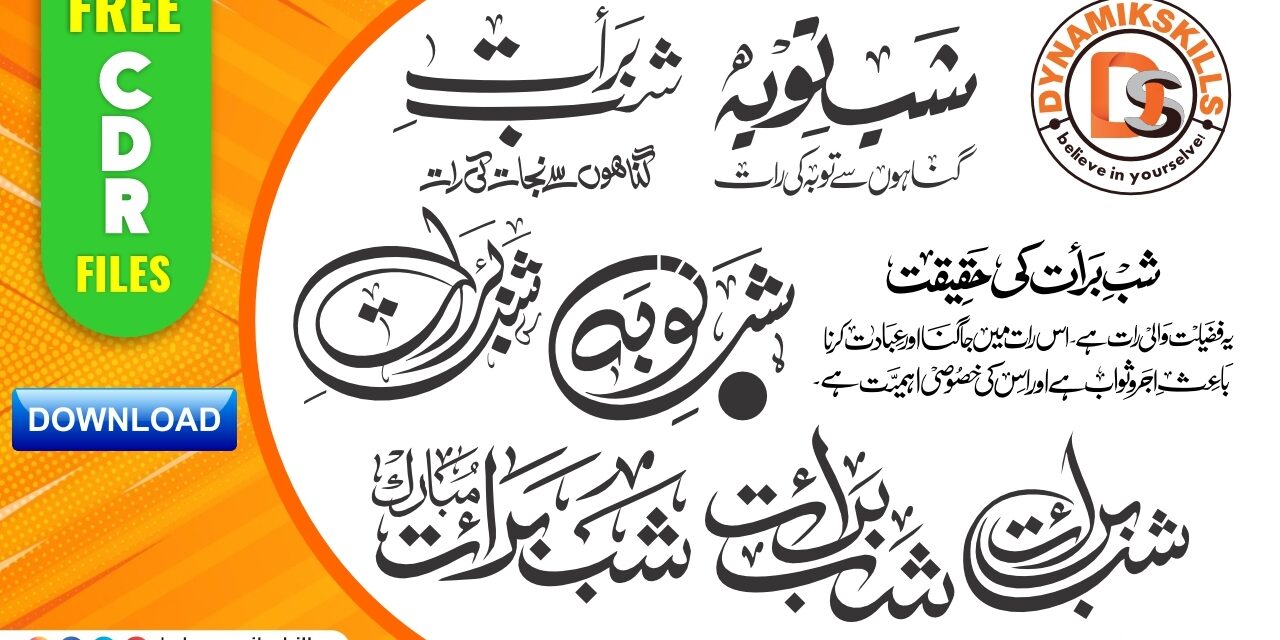 FREE
CDR
FILES
DOWNLOAD
شب برأت
گناھوں سے نجات کی رات
شب توبہ
گناہوں سے توبہ کی رات
DYNAMIKSKILLS
DS
believe in yourselve!
شب برأت
شب توبہ
شبِ بَرأت کی حَقِیقت
یہ فضیلت والی رات ہے۔ اس رات میں جاگنا اور عِبادت کرنا
باعِث اجر و ثواب ہے اور اس کی خصُوصی اہمیَّت ہے۔
شب برائت مُبارک
شب برائت
شب برائت